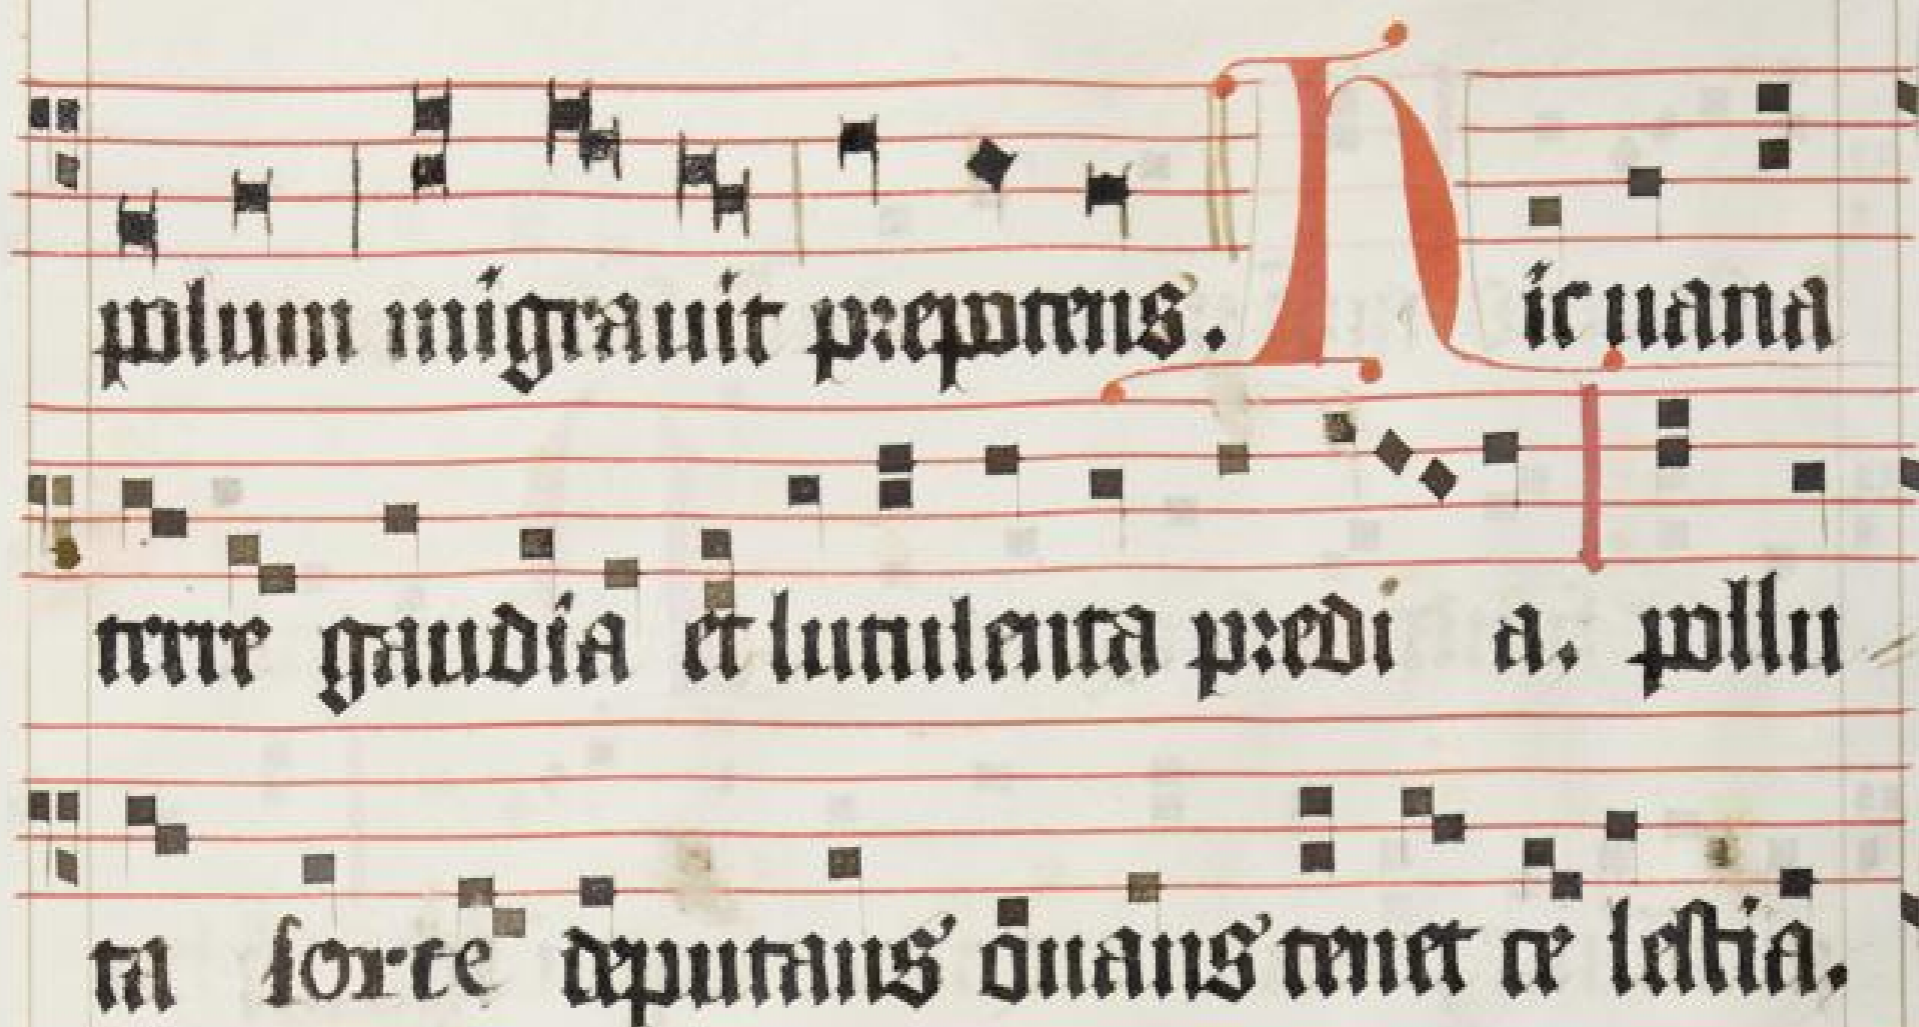 polum migrauit prepotens. Hic uana
terre gaudia et lutulenta predi a. pollu
ta sorte deputans ouans tenet ce lestia.